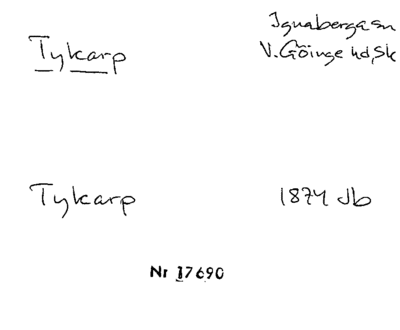 Tykarp
Ignaberga sn
V. Göinge hd, Sk
Tykarp
1874 Jb
Nr 17690